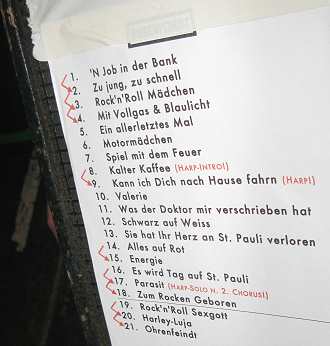 1. 'N Job in der Bank
2. Zu jung, zu schnell
3. Rock'n'Roll Mädchen
4. Mit Vollgas & Blaulicht
5. Ein allerletztes Mal
6. Motormädchen
7. Spiel mit dem Feuer
8. Kalter Kaffee (Harp-Intro!)
9. Kann ich Dich nach Hause fahrn (Harp!)
10. Valerie
11. Was der Doktor mir verschrieben hat
12. Schwarz auf Weiss
13. Sie hat Ihr Herz an St. Pauli verloren
14. Alles auf Rot
15. Energie
16. Es wird Tag auf St. Pauli
17. Parasit (Harp-Solo n. 2. Chorus!)
18. Zum Rocken Geboren
19. Rock'n'Roll Sexgott
20. Harley-Luja
21. Ohrenfeindt